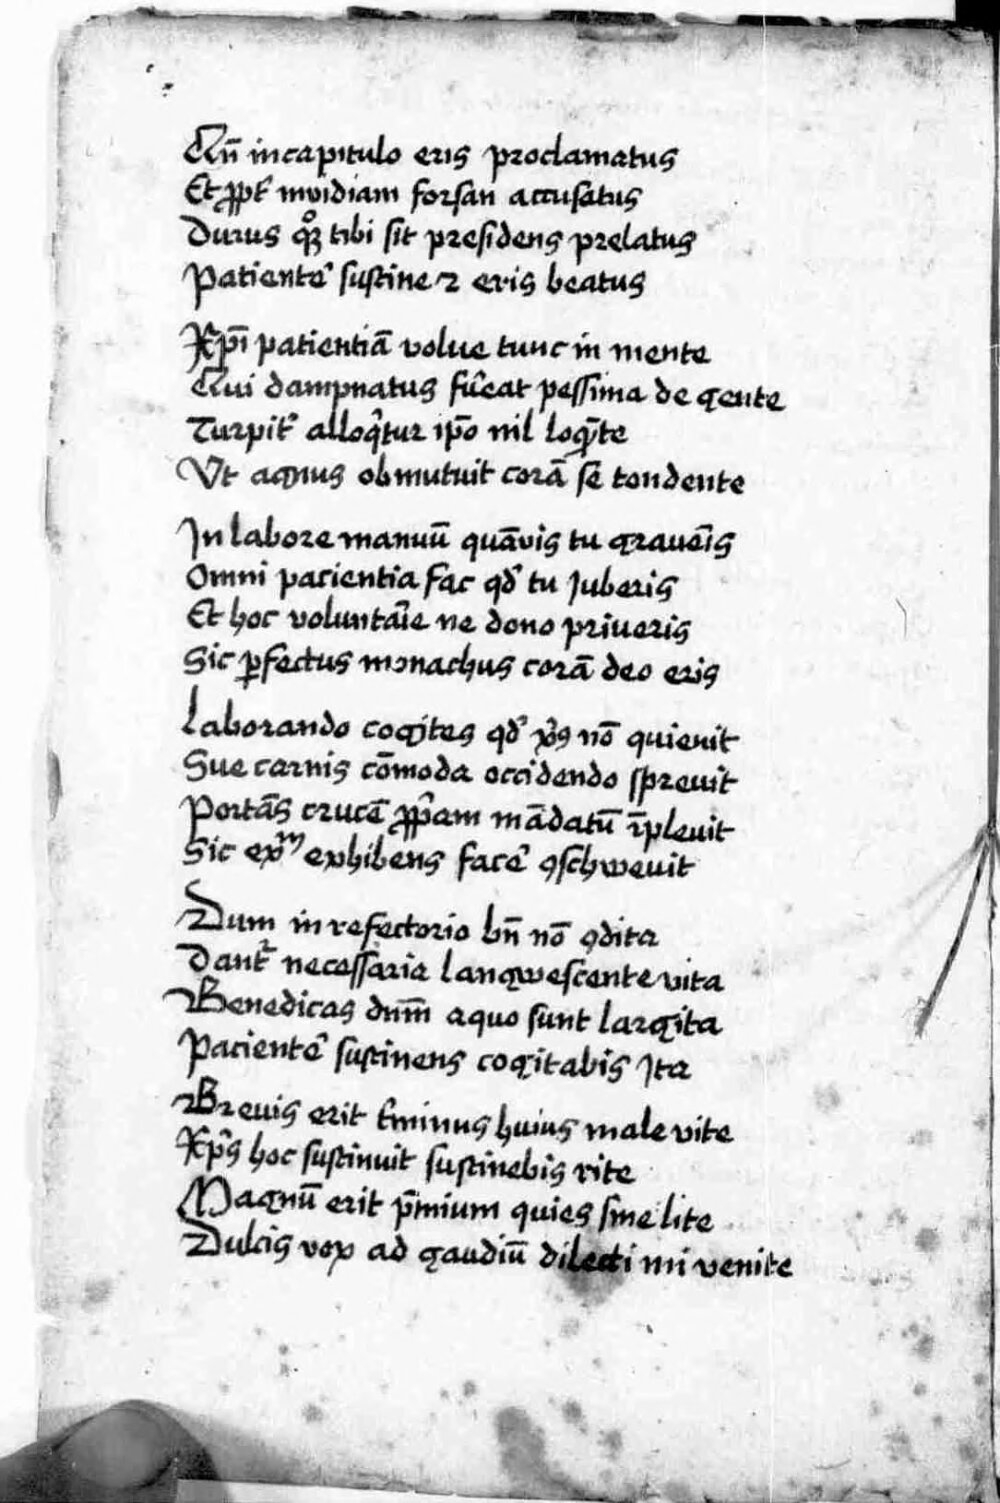 Qn̄ in capitulo eris proclamatus
Et ꝓpt' invidiam forsan accusatus
Durus qͦꝫ tibi sit presidens prelatus
Patient᷑ sustine ⁊ eris beatus
Xp̄i patientiā volue tunc in mente
Qui dampnatus fu᷑at pessima de gente
Turpit᷑ alloq᷑tur ip̄o nil loq̄nte
Ut agnus obmutuit corā se tondente
In labore manuū quāvis tu graveris
Omni pacientia fac qd᷑ tu Juberis
Et hoc voluntāie ne dono priveris
Sic ꝑfectus monachus corā deo eris
Laborando cogites qd᷑ xp̄s nō quievit
Sue carnis cōmoda occidendo sprevit
Portās crucē ꝓp̄am mādatū īplevit
Sic exᵐ exhibens fac᷑e ꝯschwevit
Dum in refectorio bn̄ nō ꝯdita
Dant᷑ necessaria langwescente vita
Benedicas dn̄m a quo sunt largita
Pacient᷑ sustinens cogitabis Ita
Brevis erit t᷑minus huius male vite
Xp̄s hoc sustinuit sustinebis rite
Magnū erit p̄mium quies sine lite
Dulcis vox ad gaudiū dilecti mi venite